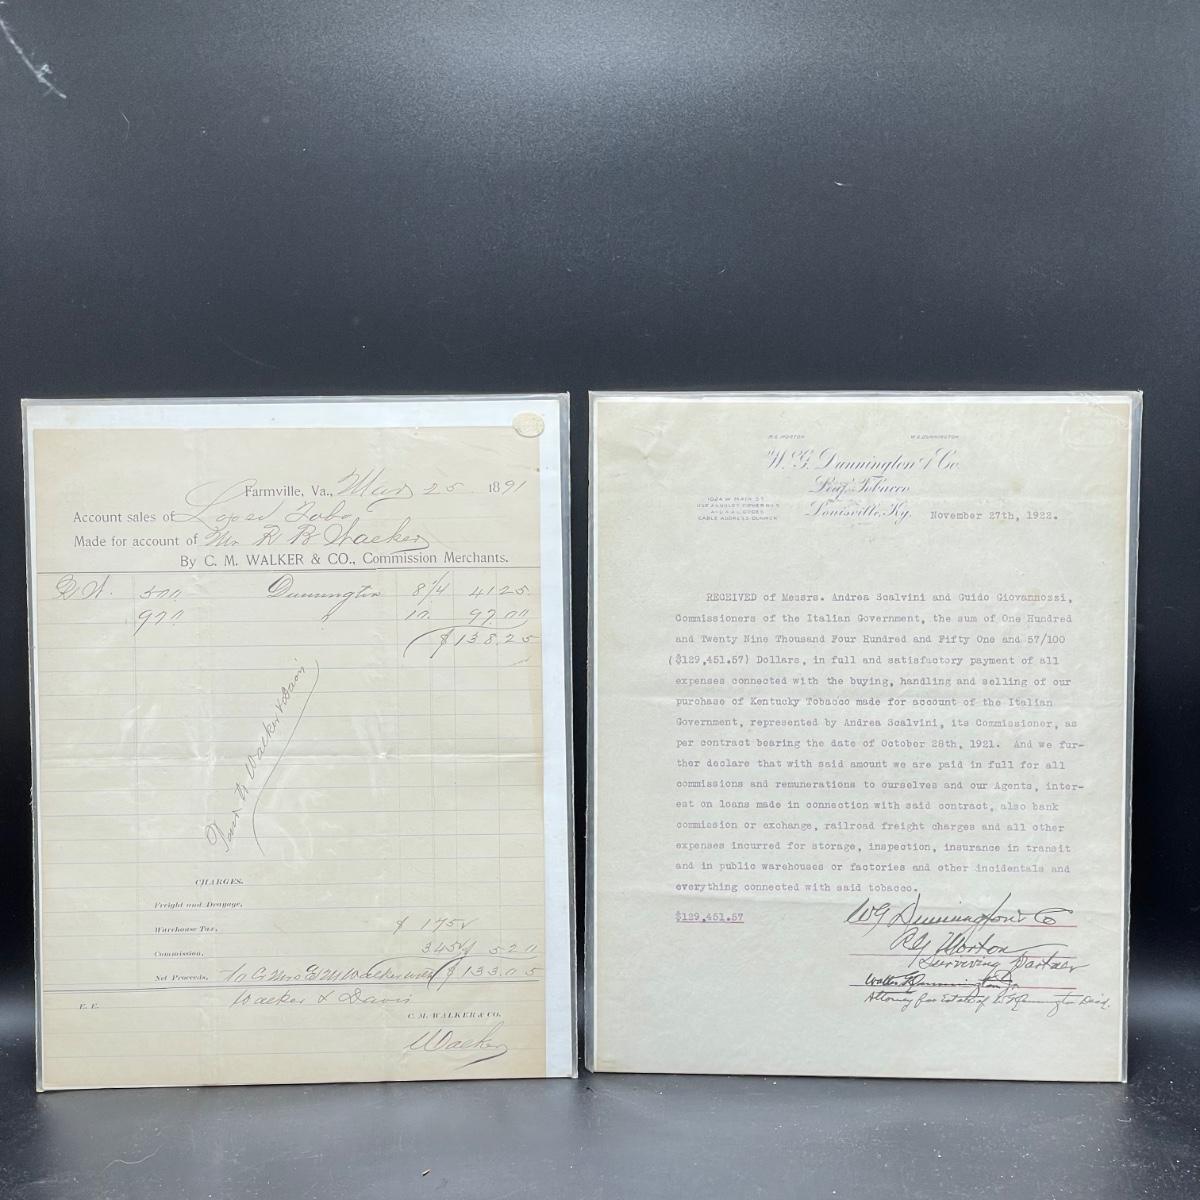 Farmville, Va., May 25 1891
Account sales of Loose Tobo
Made for account of Mr R B Walker
By C. M. WALKER & CO., Commission Merchants.
500 Dunnington 8 1/4 41.25
970 " 10. 97.00
$138.25
Walker & Davis
CHARGES.
Freight and Drayage,
Warehouse Tax, $ 175
Commission, 345 5 20
Net Proceeds, $133.05
Walker & Davis
E. E.
C. M. WALKER & CO.
Walker
R.G. MORTON W.G. DUNNINGTON
W. G. Dunnington & Co.
Leaf Tobacco
Louisville, Ky.
1024 W. MAIN ST.
CABLE ADDRESS-DUNMOR
November 27th, 1922.
RECEIVED of Messrs. Andrea Scalvini and Guido Giovannozzi,
Commissioners of the Italian Government, the sum of One Hundred
and Twenty Nine Thousand Four Hundred and Fifty One and 57/100
($129,451.57) Dollars, in full and satisfactory payment of all
expenses connected with the buying, handling and selling of our
purchase of Kentucky Tobacco made for account of the Italian
Government, represented by Andrea Scalvini, its Commissioner, as
per contract bearing the date of October 28th, 1921. And we fur-
ther declare that with said amount we are paid in full for all
commissions and remunerations to ourselves and our Agents, inter-
est on loans made in connection with said contract, also bank
commission or exchange, railroad freight charges and all other
expenses incurred for storage, inspection, insurance in transit
and in public warehouses or factories and other incidentals and
everything connected with said tobacco.
$129,451.57
WG Dunnington & Co
RG Morton
Surviving Partner
Walter G Dunnington Jr
Attorney for Estate of W G Dunnington Decd.